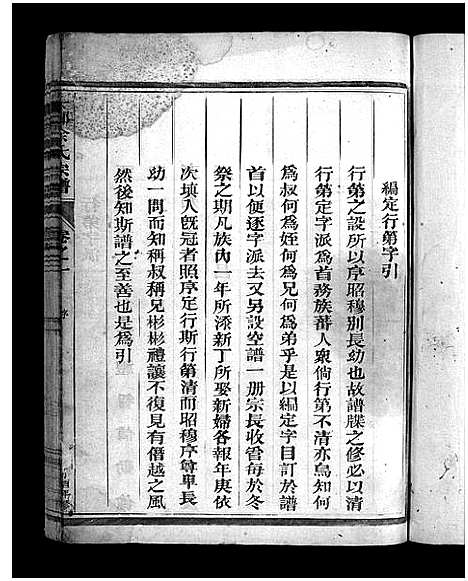 編定行第字引
行第之設所以序昭穆别長幼也故譜牒之修必以清
行第定字派爲首務族蕃人衆倘行第不清亦烏知何
爲叔何爲姪何爲兄何爲弟乎是以編定字目訂於譜
首以便逐字派去又另設空譜一册宗長收管每於冬
祭之期凡族內一年所添新丁所娶新婦各報年庚依
次填入旣冠者照序定行斯行第清而昭穆序尊卑長
幼一問而知稱叔稱兄彬彬禮讓不復見有僭越之風
然後知斯譜之至善也是爲引
余氏宗譜
卷